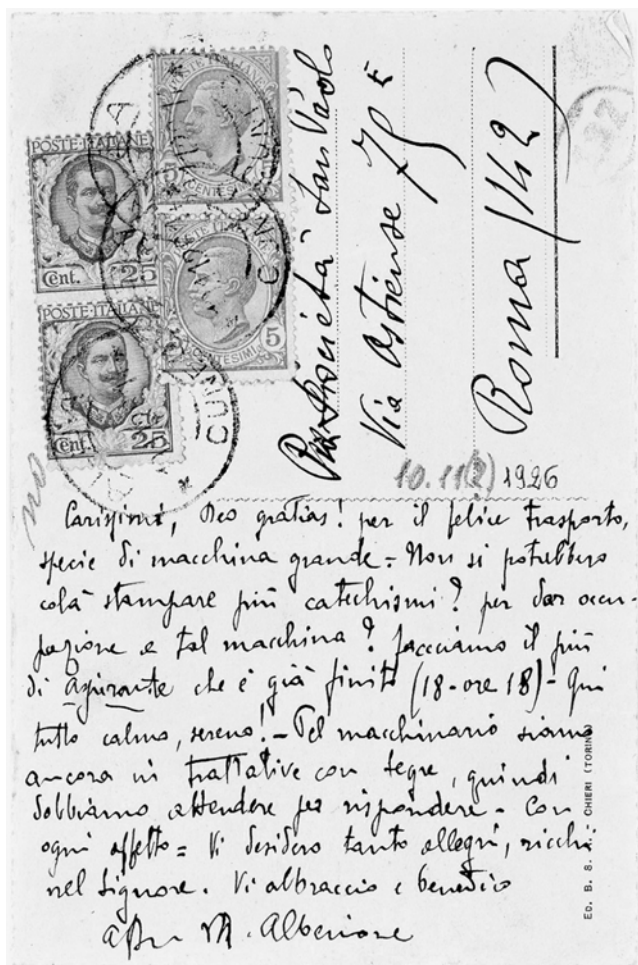 POSTE·ITALIANE
Cent. 25
POSTE·ITALIANE
Cent. 25
POSTE ITALIANE
5 CENTESIMI 5
POSTE ITALIANE
CENTESIMI 5
CUNEO
Pia Società San Paolo
Via Ostiense 75 E
Roma (142)
10.11(?) 1926
no
Carissimi, Deo gratias! per il felice trasporto,
specie di macchina grande = Non si potrebbero
colà stampare più catechismi? per dar occu-
pazione a tal macchina? facciamo il più
di Aspirante che è già finito (18-ore 18) - Qui
tutto calmo, sereno! - Pel macchinario siamo
ancora in trattative con Segre, quindi
dobbiamo attendere per rispondere - Con
ogni affetto = Vi desidero tanto allegri, ricchi
nel Signore. Vi abbraccio e benedico
M. Alberione
ED. B. S. CHIERI (TORINO)